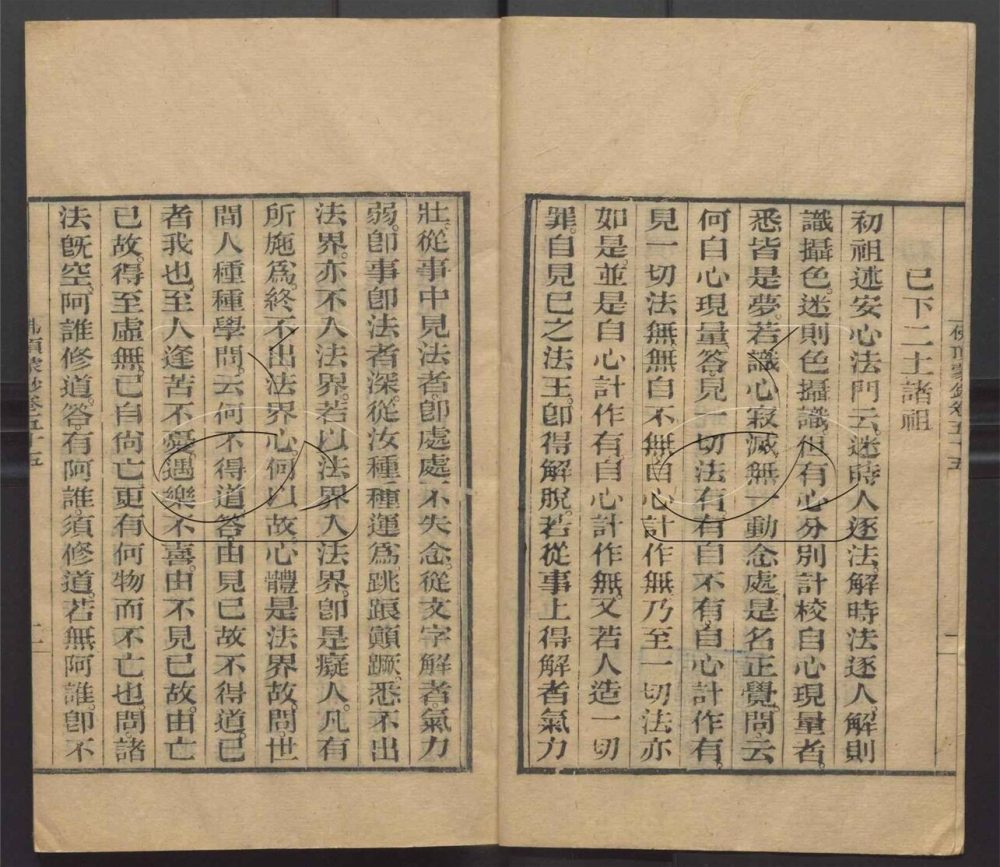 已下二土諸祖
初祖述安心法門云迷時人逐法解時法逐人解則
識攝色迷則色攝識但有心分別計校自心現量者
悉皆是夢若識心寂滅無一動念處是名正覺問云
何自心現量答見一切法有有自不有自心計作有
見一切法無無自不無自心計作無乃至一切法亦
如是並是自心計作有自心計作無又若人造一切
罪自見己之法王即得解脫若從事上得解者氣力
壯從事中見法者即處處不失念從文字解者氣力
弱即事即法者深從汝種種運為跳踉顛蹶悉不出
法界亦不入法界若以法界入法界即是癡人凡有
所施為終不出法界心何以故心體是法界故問世
間人種種學問云何不得道答由見己故不得道己
者我也至人逢苦不憂遇樂不喜由不見己故由亡
己故得至虛無己自尚亡更有何物而不亡也問諸
法旣空阿誰修道答有阿誰須修道若無阿誰即不